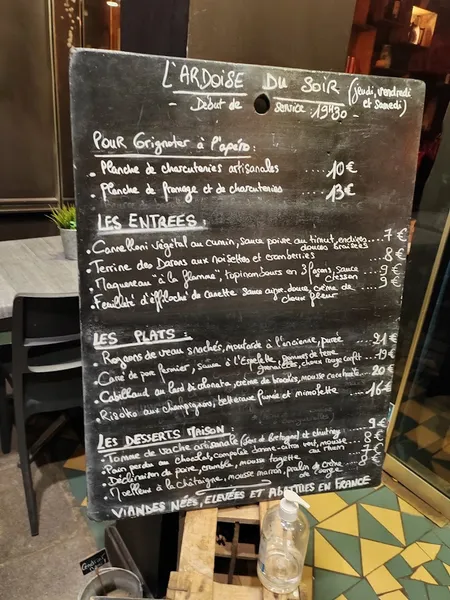 L'ARDOISE DU SOIR (jeudi, vendredi
et samedi)
- Début de service 19H30 -
POUR Grignoter à l'apéro :
. Planche de charcuteries artisanales .... 10€
. Planche de fromage et de charcuteries ... 13€
LES ENTREES :
. Cannelloni végétal au cumin, sauce poivre au timut, endives .... 7€
douces braisées
. Terrine des Darons aux noisettes et cranberries ... 8€
. Maquereau "à la flamme", topinambours en 3 façons, sauce ... 9€
cresson
. Feuilleté d'effiloché de canette sauce aigre-douce, crème de ... 9€
choux fleur
LES PLATS :
. Rognons de veau snackés, moutarde à l'ancienne, purée ... 21€
. Carré de porc fermier, sauce à l'Espelette, pommes de terre ... 19€
grenailles, choux rouge confit
. Cabillaud au lard di colonata, crème de brocolis, mousse ... 20€
. Risotto aux champignons, betterave fumée et mimolette ... 16€
LES DESSERTS MAISON :
. Tomme de vache artisanale (de Bretagne) et chutney ... 9€
. Pain perdu au chocolat, compotée vert, mousse ... 8€
. Déclinaison de poire, crumble, mousse au rhum
. Moelleux à la châtaigne, mousse marron, de crème
VIANDES NÉES, ELEVÉES ET ABATTUES EN FRANCE